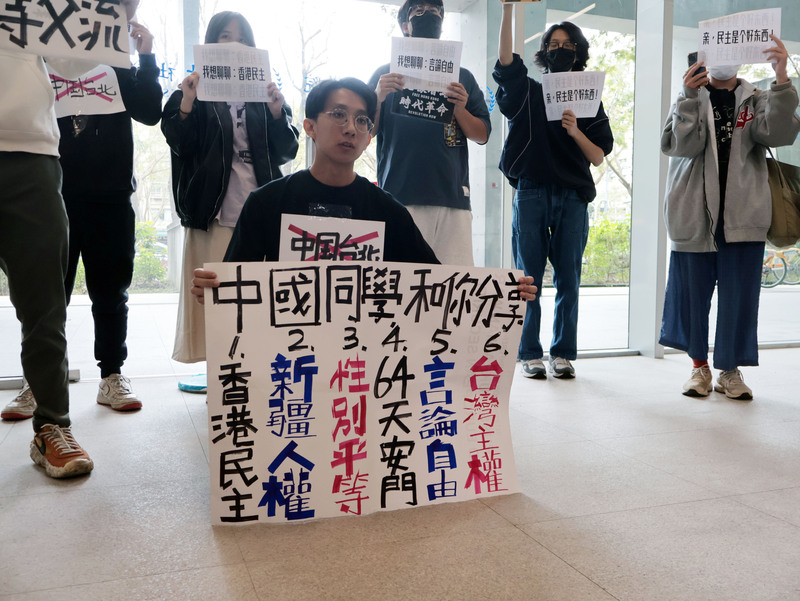 等交流
国台北
我想聊聊：香港民主
我想聊聊：言論自由
亲，民主是个好东西！
亲，民主是个好东西！
FREE HONG KONG
時代革命
REVOLUTION NOW
中国台北
中國同學和你分享
1.香港民主
2.新疆人權
3.性別平等
4.64天安門
5.言論自由
6.台灣主權